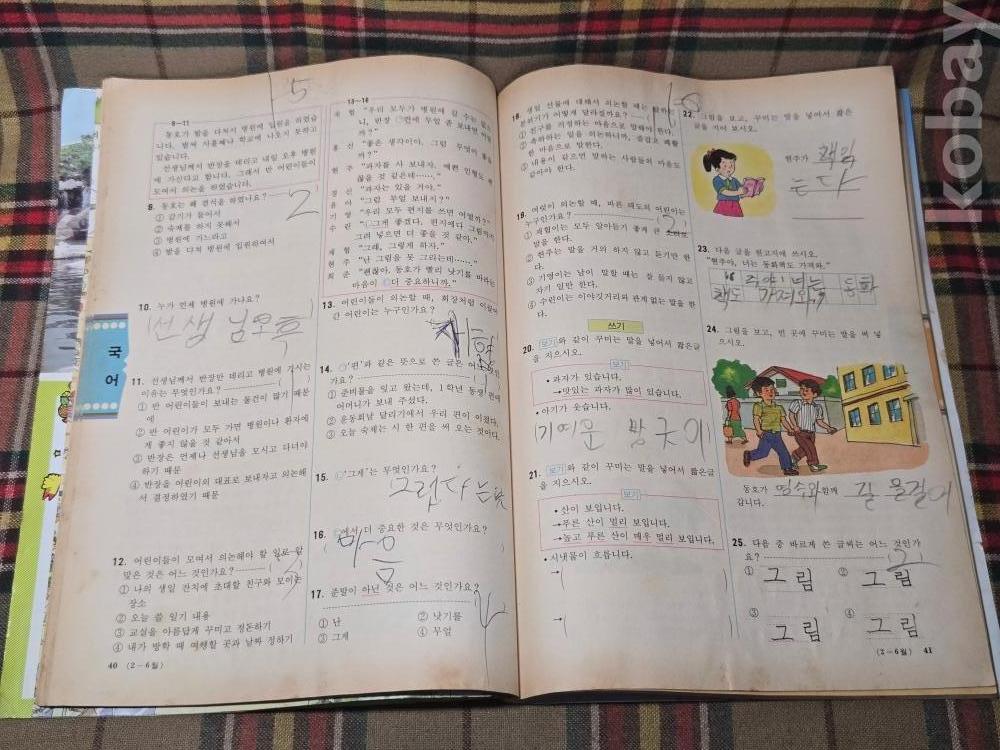 8~11
동호가 발을 다쳐서 병원에 입원을 하였습
니다. 벌써 사흘째나 학교에 나오지 못하고
있습니다.
선생님께서 반장을 데리고 내일 오후 병원
에 가신다고 합니다. 그래서 반 어린이들이
모여서 의논을 하였습니다.
8. 동호는 왜 결석을 하였나요?
2
① 감기가 들어서
② 숙제를 하지 못해서
③ 병원에 가느라고
④ 발을 다쳐 병원에 입원하여서
10. 누가 언제 병원에 가나요?
선생님오후
국어
11. 선생님께서 반장만 데리고 병원에 가시는
이유는 무엇인가요?
① 반 어린이들이 보내는 물건이 많기 때문
에
② 반 어린이가 모두 가면 병원이나 환자에
게 좋지 않을 것 같아서
③ 반장은 언제나 선생님을 모시고 다녀야
하기 때문
④ 반장을 어린이의 대표로 보내자고 의논해
서 결정하였기 때문
12. 어린이들이 모여서 의논해야 할 일로 알
맞은 것은 어느 것인가요?
① 나의 생일 잔치에 초대할 친구와 모이는
장소
② 오늘 쓸 일기 내용
③ 교실을 아름답게 꾸미고 정돈하기
④ 내가 방학 때 여행할 곳과 날짜 정하기
40 (2-6월)
13~18
재 협 "우리 모두가 병원에 갈 수는 없으
니, 반장 편에 무얼 좀 보내면 어떨
까?"
홍 신 "좋은 생각이야. 그럼 무엇이 좋을
까?"
현 주 "과자를 사 보내자. 예쁜 인형도 괜
찮을 것 같은데……."
정 선 "과자는 있을 거야."
윤 아 "그럼 무얼 보내지?"
기 영 "우리 모두 편지를 쓰면 어떨까?"
수 린 "그게 좋겠다. 편지에다 그림까지
그려 넣으면 더 좋을 것 같아."
재 협 "그래, 그렇게 하자."
현 주 "난 그림을 못 그리는데……."
희 준 "괜찮아. 동호가 빨리 낫기를 바라는
마음이 더 중요하니까."
13. 어린이들이 의논할 때, 회장처럼 이끌어
간 어린이는 누구인가요?
재협
14. '편'과 같은 뜻으로 쓴 글은 어느 것인
가요?
① 준비물을 잊고 왔는데, 1학년 동생 편에
어머니가 보내 주셨다.
② 운동회날 달리기에서 우리 편이 이겼다.
③ 오늘 숙제는 시 한 편을 써 오는 것이다.
15. '그게'는 무엇인가요?
16. 에서 더 중요한 것은 무엇인가요?
마음
17. 준말이 아닌 것은 어느 것인가요?
① 난 ② 낫기를
③ 그게 ④ 무얼
18. 생일 선물에 대해서 의논할 때는 말하는
분위기가 어떻게 달라질까요?
① 친구를 걱정하는 마음으로 말해야 한다.
② 축하하는 일을 의논하니까, 즐겁고 쾌활
한 마음으로 말한다.
③ 내용이 같으면 말하는 사람들의 마음도
같아야 한다.
19. 여럿이 의논할 때, 바른 태도의 어린이는
누구인가요?
① 재협이는 모두 알아듣기 좋게 큰 소리로
말을 한다.
② 현주는 말을 거의 하지 않고 듣기만 한
다.
③ 기영이는 남이 말할 때는 잘 듣지 않고
자기 말만 한다.
④ 수린이는 이야깃거리와 관계없는 말을 한
다.
쓰기
20. 보기와 같이 꾸미는 말을 넣어서 짧은글
을 지으시오.
보기
•과자가 있습니다.
→맛있는 과자가 많이 있습니다.
•아기가 웃습니다.
21. 보기와 같이 꾸미는 말을 넣어서 짧은글
을 지으시오.
보기
•산이 보입니다.
→푸른 산이 멀리 보입니다.
→높고 푸른 산이 매우 멀리 보입니다.
•시냇물이 흐릅니다.
→(
→(
22. 그림을 보고, 꾸미는 말을 넣어서 짧은
글을 지어 보시오.
현주가
23. 다음 글을 원고지에 쓰시오.
"현주야, 너는 동화책도 가져와."
24. 그림을 보고, 빈 곳에 꾸미는 말을 써 넣
으시오.
동호가 영수와 함께
갑니다.
25. 다음 중 바르게 쓴 글씨는 어느 것인가
요?
① 그림 ② 그림
③ 그림 ④ 그림
(2-6월) 41
kobay